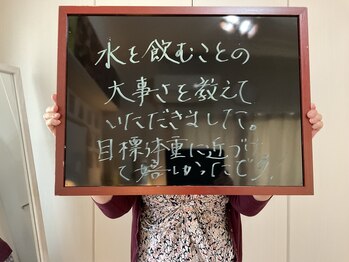 水を飲むことの
大事さを教えて
いただきました。
目標体重に近づけ
て嬉しかったです。